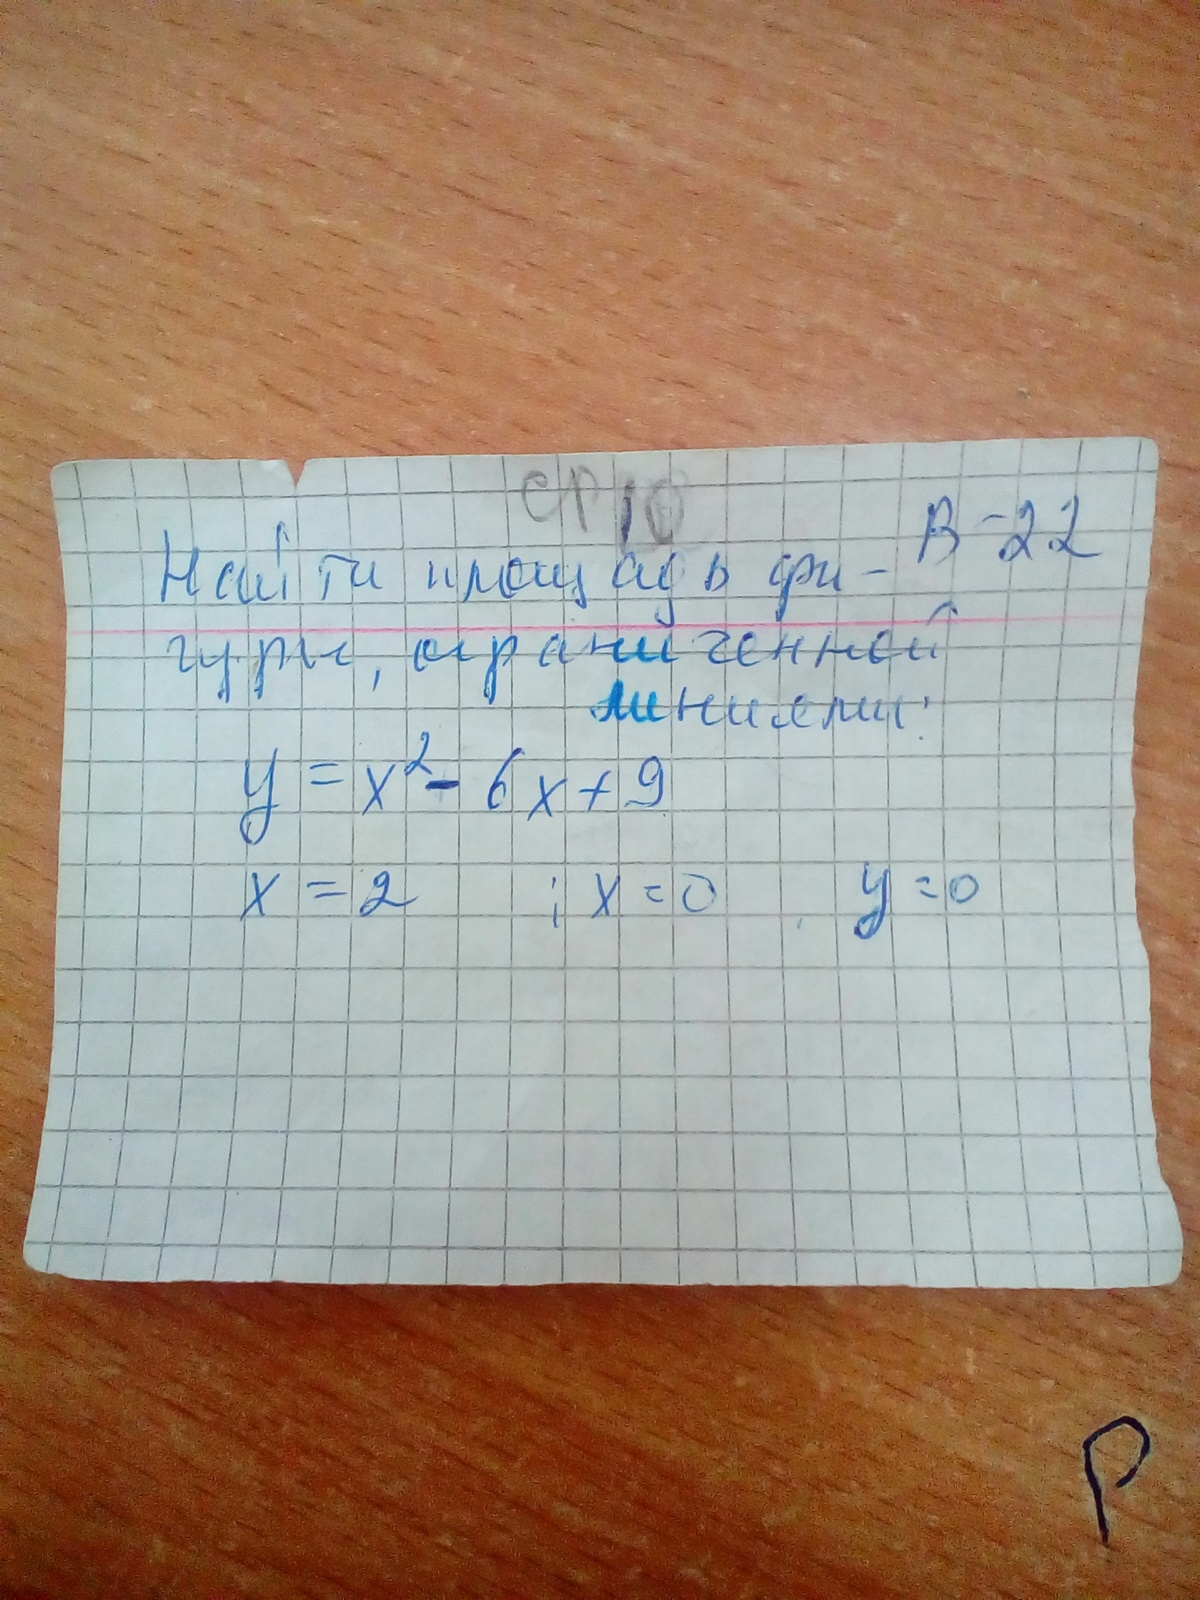 ср 10
В-22
Найти площадь фи-
гуры, ограниченной
линиями:
y = x² - 6x + 9
x = 2 ; x = 0 , y = 0
Р